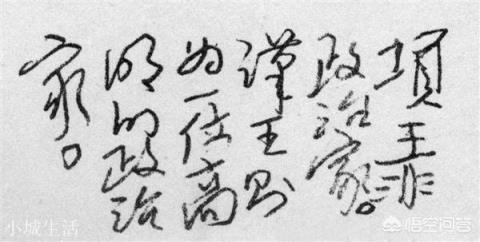 項王非
政治家。
漢王则
为一位高
明的政治
家。
小城生活
悟空问答